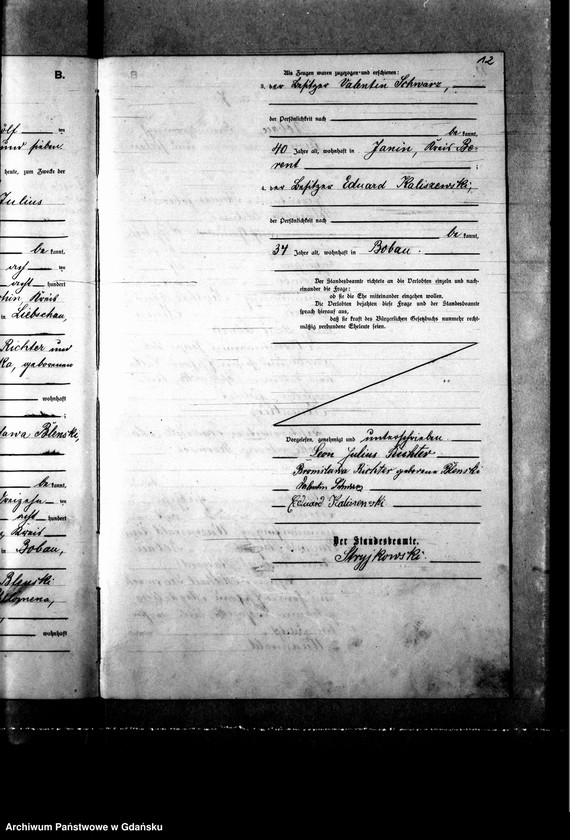 B.
ölf
und sieben
heute, zum Zwecke der
Julius
be kannt,
hundert
Kreis
in Liebschau,
Richter und
geborenen
wohnhaft
Blenski,
be kannt,
dreizehn
acht hundert
Kreis
in Bobau,
Blenski
wohnhaft
12
Als Zeugen waren zugezogen und erschienen:
3. der Besitzer Valentin Schwarz,
der Persönlichkeit nach
be kannt,
40 Jahre alt, wohnhaft in Janin, Kreis Be-
rent ;
4. der Besitzer Eduard Kaliszewski,
der Persönlichkeit nach
be kannt,
34 Jahre alt, wohnhaft in Bobau.
Der Standesbeamte richtete an die Verlobten einzeln und nach-
einander die Frage:
ob sie die Ehe miteinander eingehen wollen.
Die Verlobten bejahten diese Frage und der Standesbeamte
sprach hierauf aus,
daß sie kraft des Bürgerlichen Gesetzbuchs nunmehr recht-
mäßig verbundene Eheleute seien.
Vorgelesen, genehmigt und unterschrieben.
Leon Julius Richter
Bronislawa Richter geborene Blenski
Valentin Schwarz
Eduard Kaliszewski
Der Standesbeamte.
Stryjkowski.
Archiwum Państwowe w Gdańsku